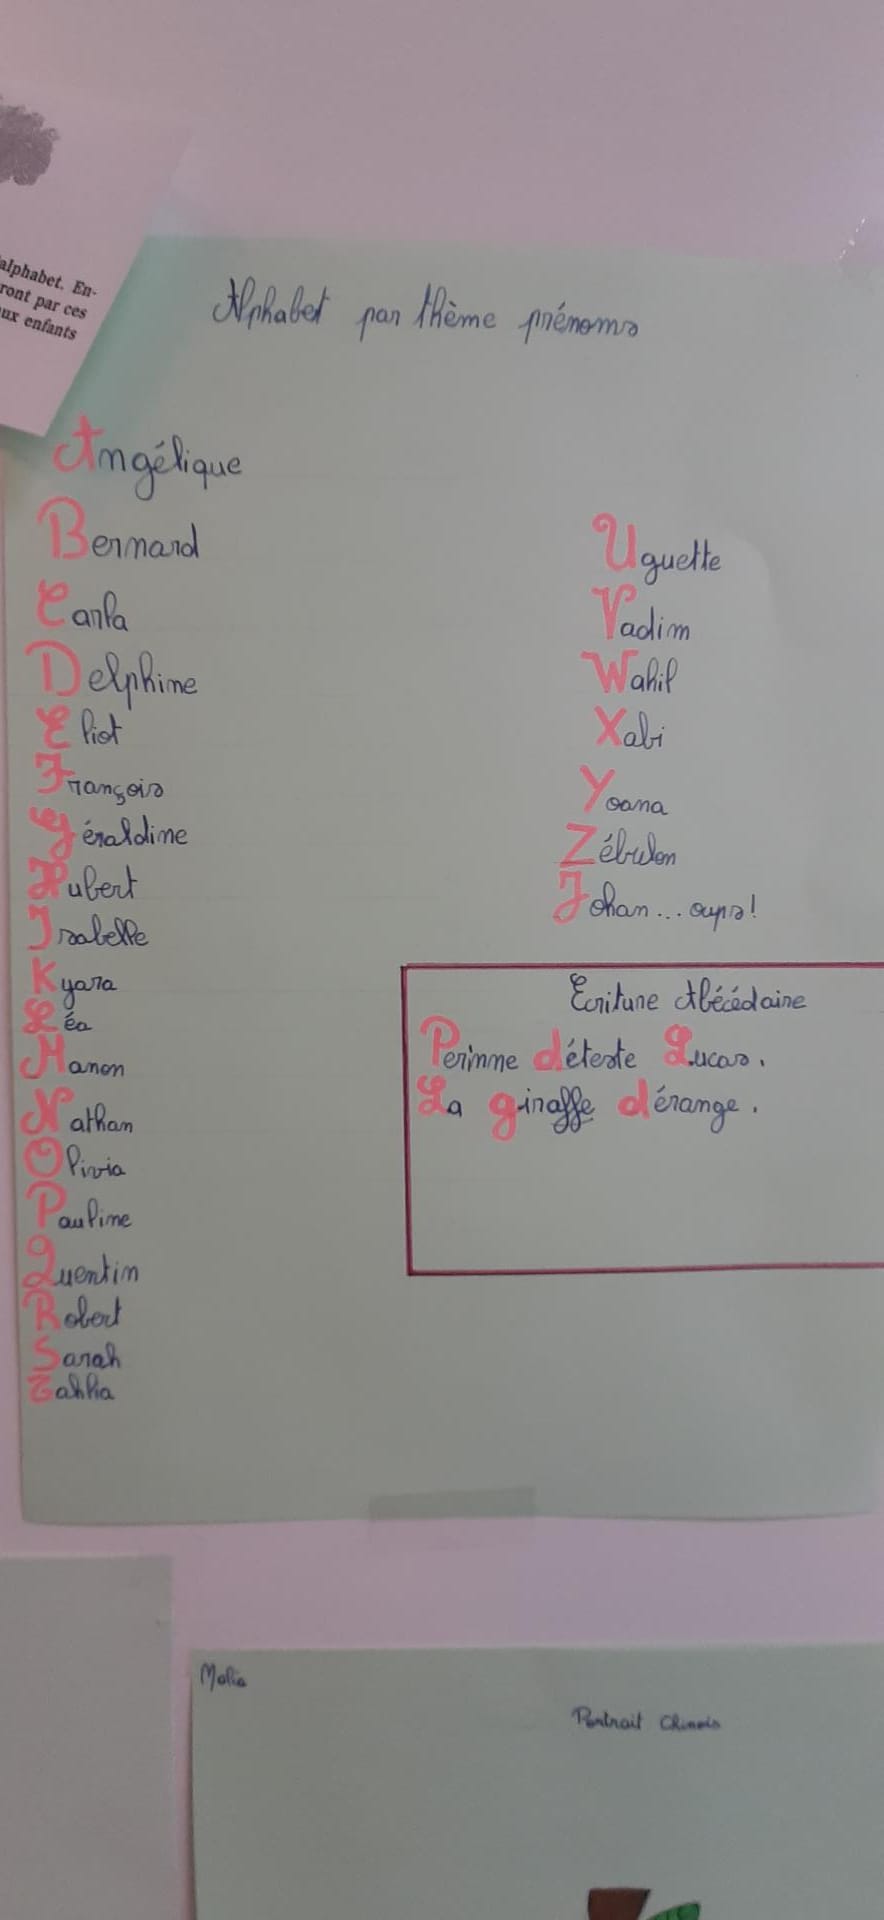 alphabet. En-
ront par ces
ux enfants
Alphabet par thème prénoms
Angélique
Bernard
Carla
Delphine
Eliot
François
Géraldine
Hubert
Isabelle
Kyara
Léa
Manon
Nathan
Olivia
Pauline
Quentin
Robert
Sarah
Tahlia
Uguette
Vadim
Wahil
Xabi
Yoana
Zébulon
Johan... oups!
Ecriture Abécédaire
Perinne déteste Lucas.
La giraffe dérange.
Malia
Portrait Chinois